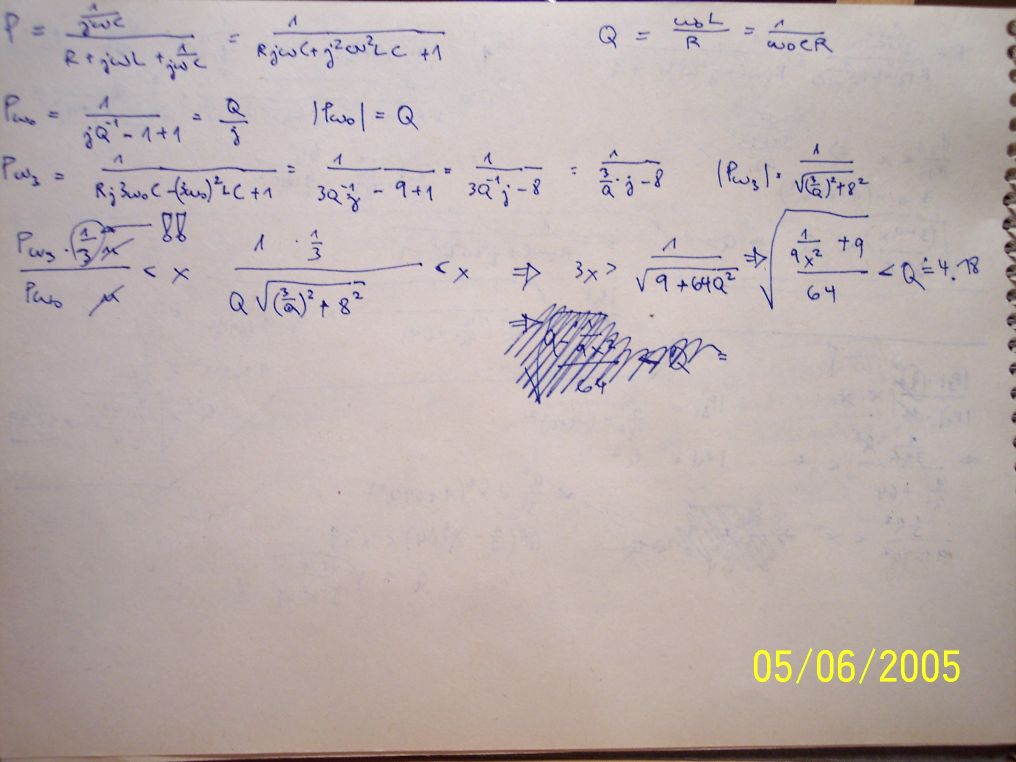 P = \frac{\frac{1}{jωC}}{R + jωL + \frac{1}{jωC}} = \frac{1}{RjωC + j²ω²LC + 1}   Q = \frac{ω₀L}{R} = \frac{1}{ω₀CR}
P_{ω₀} = \frac{1}{jQ⁻¹ - 1 + 1} = \frac{Q}{j}   |P_{ω₀}| = Q
P_{ω₃} = \frac{1}{Rj3ω₀C - (3ω₀)²LC + 1} = \frac{1}{3Q⁻¹j - 9 + 1} = \frac{1}{3Q⁻¹j - 8} = \frac{1}{\frac{3}{Q}·j - 8}   |P_{ω₃}| = \frac{1}{\sqrt{(\frac{3}{Q})² + 8²}}
\frac{P_{ω₃} · (\frac{1}{3})}{P_{ω₀}} < x   !!   \frac{1 · \frac{1}{3}}{Q\sqrt{(\frac{3}{Q})² + 8²}} < x ⇒ 3x > \frac{1}{\sqrt{9 + 64Q²}} ⇒ \sqrt{\frac{\frac{1}{9x²} + 9}{64}} < Q ≐ 4.18
⇒ 64 Q =
05/06/2005